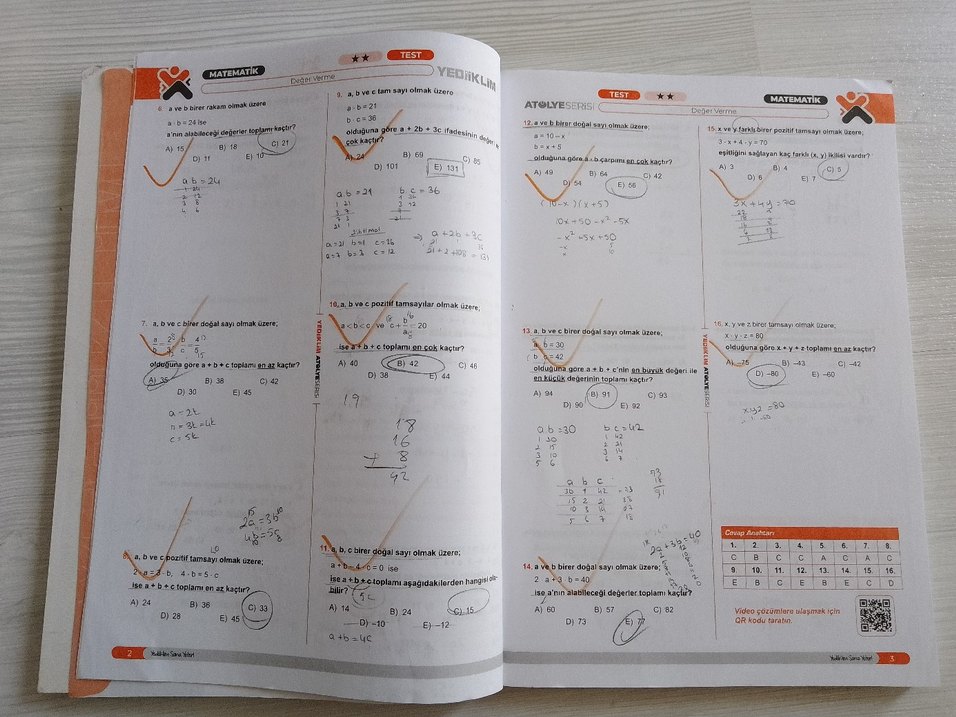 MATEMATİK
★★ TEST
Değer Verme
YEDİİKLİM
6. a ve b birer rakam olmak üzere
a · b = 24 ise
a'nın alabileceği değerler toplamı kaçtır?
A) 15 B) 18 C) 21
D) 11 E) 10
a b = 24
1 24
2 12
3 8
4 6
7. a, b ve c birer doğal sayı olmak üzere;
olduğuna göre a + b + c toplamı en az kaçtır?
A) 35 B) 38 C) 42
D) 30 E) 45
a = 2k
c = 5k
2a = 3b
4b = 5
8. a, b ve c pozitif tamsayı olmak üzere;
2 · a = 3 · b, 4 · b = 5 · c
ise a + b + c toplamı en az kaçtır?
A) 24 B) 36 C) 33
D) 28 E) 45
9. a, b ve c tam sayı olmak üzere
a · b = 21
b · c = 36
olduğuna göre a + 2b + 3c ifadesinin değeri en
çok kaçtır?
A) 24 B) 69 C) 85
D) 101 E) 131
ab = 21 bc = 36
⇒ a + 2b + 3c
a = 21 b = 1 c = 36
a = 7 b = 3 c = 12
21 + 2 + 108 = 131
10. a, b ve c pozitif tamsayılar olmak üzere;
a < b < c ve c + b/a = 20
ise a + b + c toplamı en çok kaçtır?
A) 40 B) 42 C) 46
D) 38 E) 44
19
18
16
+ 8
42
11. a, b, c birer doğal sayı olmak üzere;
a + b - 4 · c = 0 ise
ise a + b + c toplamı aşağıdakilerden hangisi ola-
bilir?
5c
A) 14 B) 24 C) 15
D) -10 E) -12
a + b = 4c
2
Yediiklim Sana Yeter!
ATÖLYESERİSİ
TEST ★★
Değer Verme
MATEMATİK
12. a ve b birer doğal sayı olmak üzere;
a = 10 - x
b = x + 5
olduğuna göre a · b çarpımı en çok kaçtır?
A) 49 B) 64 C) 42
D) 54 E) 56
(10 - x)(x + 5)
10x + 50 - x² - 5x
- x² + 5x + 50
13. a, b ve c birer doğal sayı olmak üzere;
a · b = 30
b · c = 42
olduğuna göre a + b + c'nin en büyük değeri ile
en küçük değerinin toplamı kaçtır?
A) 94 B) 91 C) 93
D) 90 E) 92
ab = 30 bc = 42
1 30 1 42
2 15 2 21
3 10 3 14
5 6 6 7
a b c
30 1 42 = 73
15 2 21 38
10 3 14 27
5 6 7 18
73
18
91
2a + 3b = 40
14. a ve b birer doğal sayı olmak üzere;
2 · a + 3 · b = 40
ise a'nın alabileceği değerler toplamı kaçtır?
A) 60 B) 57 C) 82
D) 73 E) 77
15. x ve y farklı birer pozitif tamsayı olmak üzere;
3 · x + 4 · y = 70
eşitliğini sağlayan kaç farklı (x, y) ikilisi vardır?
A) 3 B) 4 C) 5
D) 6 E) 7
3x + 4y = 70
16. x, y ve z birer tamsayı olmak üzere;
x · y · z = 80
olduğuna göre x + y + z toplamı en az kaçtır?
A) -75 B) -43 C) -42
D) -80 E) -60
xyz = 80
YEDİİKLİM ATÖLYESERİSİ
Cevap Anahtarı
1. 2. 3. 4. 5. 6. 7. 8.
C B C C A C A C
9. 10. 11. 12. 13. 14. 15. 16.
E B C E B E C D
Video çözümlere ulaşmak için
QR kodu taratın.
Yediiklim Sana Yeter!
3